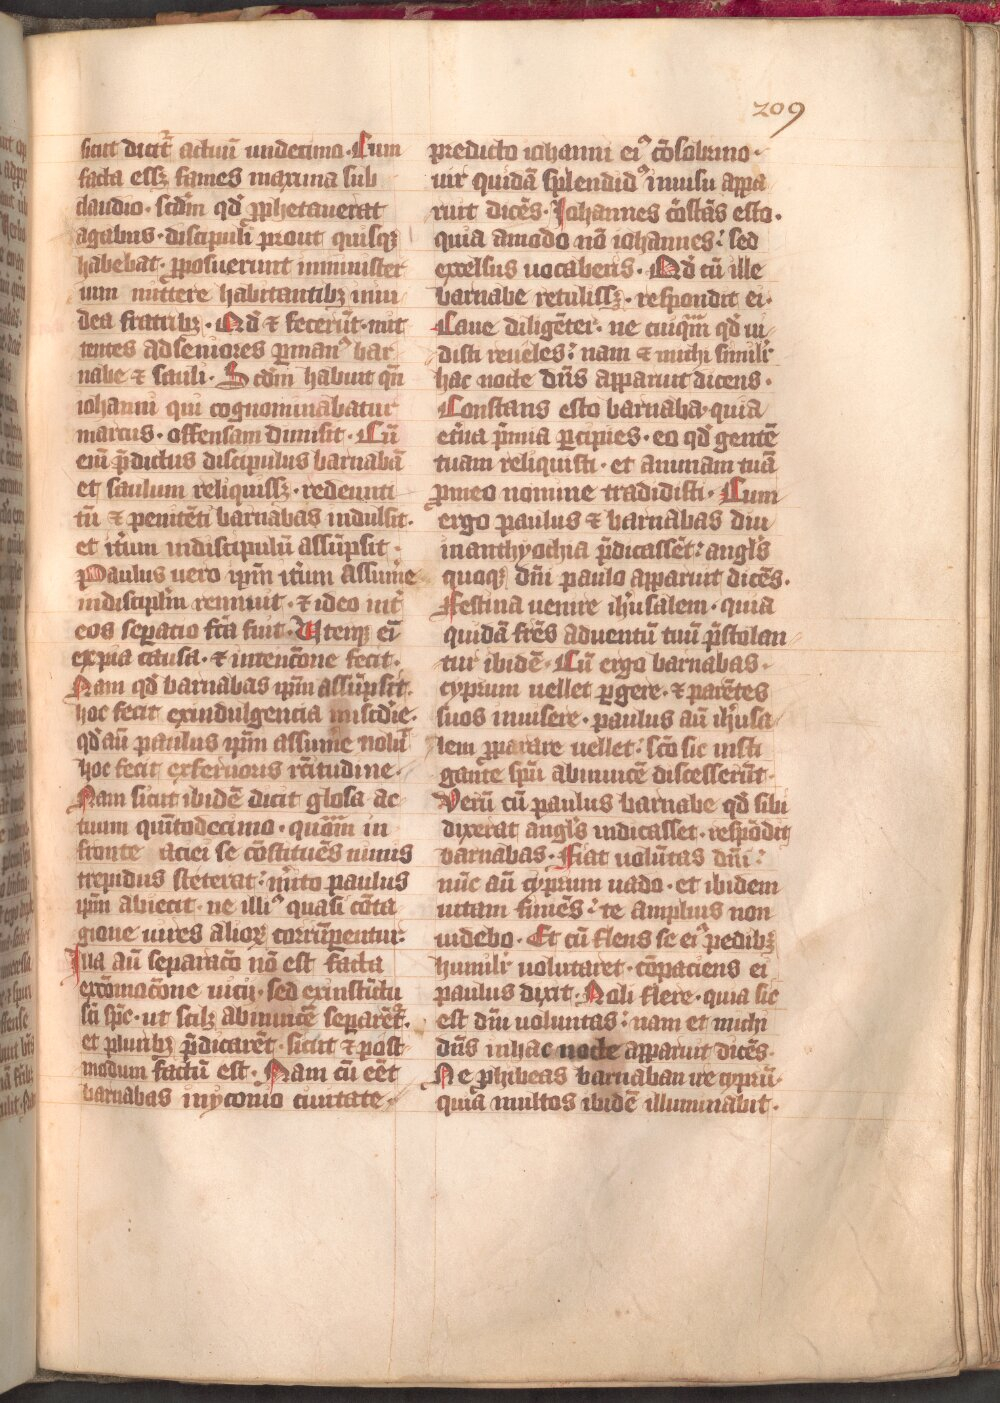 209
sicut dicit᷑ actuū undecimo · Cum
facta essꝫ fames maxima sub
claudio · scd̄m qd̓ ꝓphetauerat
agabus · discipuli prout quisqꝫ
habebat · ꝓposuerunt inminister
ium mittere habitantibꝫ iniu
dea fratribꝫ · Qd̓ ⁊ fecerūt · mit
tentes adseniores ꝑmanꝰ bar
nabe ⁊ sauli · Scd̄m habuit qn̄
iohanni qui cognominabatur
marcus · offensam dimisit · Cū
eīn p̄dictus discipulus barnabā
et saulum reliquissꝫ · redeunti
tn̄ ⁊ penitēti barnabas indulsit ·
et itꝰum indiscipulū assūpsit ·
Paulus uero ip̄m itꝰum assumꝰe
indiscipl̄m rennuit · ⁊ ideo int̓
eos sepacio fc̄a fuit · Uterqꝫ eī
expia causa · ⁊ intencōne fecit ·
Nam qd̓ barnabas ip̄m assūpsit ·
hoc fecit exindulgencia miscd̓ie ·
qd̓ aū paulus ip̄m assumꝰe noluit
hoc fecit exferuoris rc̄titudine ·
Nam sicut ibidē dicit glosa ac
tuum quītodecimo · quōm in
fronte aciei se cōstituēs nimis
trepidus steterat · mꝰito paulus
ip̄m abiecit · ne illiꝰ quasi cōta
gione uires alioꝝ corrūpentur ·
Ista aū separacō nō est facta
excōmocōne uicij · sed exinstīctu
sc̄i sp̄c · ut scilꝫ abinuicē separēt᷑ ·
et pluribꝫ p̄dicarēt · sicut ⁊ post
modum factū est · Nam cū eēt
barnabas inyconio ciuitate ·
predicto iohanni eiꝰ cōsobrino ·
uir quidā splendidꝰ inuisu appa
ruit dicēs · Iohannes cōstās esto ·
quia amodo nō iohannes · sed
excelsus uocaberis · Qd̓ cū ille
barnabe retulissꝫ · respondit ei ·
Caue diligēter · ne cuiqᷓm qd̓ ui
disti reueles · nam ⁊ michi similir̓
hac nocte dn̄s apparuit dicens ·
Constans esto barnaba · quia
etꝰna p̄mia ꝑcipies · eo qd̓ gentē
tuam reliquisti · et animam tuā
ꝓmeo nomine tradidisti · Cum
ergo paulus ⁊ barnabas diu
inanthyochia p̄dicassēt · angl̓s
quoqꝫ dn̄i paulo apparuit dicēs ·
Festina uenire ih̄rusalem · quia
quidā frēs aduentū tuū p̄stolan
tur ibidē · Cū ergo barnabas ·
cyprum uellet ꝑgere · ⁊ parētes
suos inuisere · paulus aū ih̄rusa
lem ꝓparare uellet · sc̄o sic insti
gante spū abinuicē discesserūt ·
Verū cū paulus barnabe qd̓ sibi
dixerat angl̓s indicasset · respōdit
barnabas · Fiat uolūtas dn̄i ·
nūc aū cyprum uado · et ibidem
uitam finiēs · te amplius non
uidebo · Et cū flens se eiꝰ pedibꝫ
humilir̓ uolutaret · cōpaciens ei
paulus dixit · Noli flere · quia sic
est dn̄i uoluntas · nam et michi
dn̄s inhac nocte apparuit dicēs ·
Ne ꝓhibeas barnaban ire cyprū ·
quia multos ibidē illuminabit ·